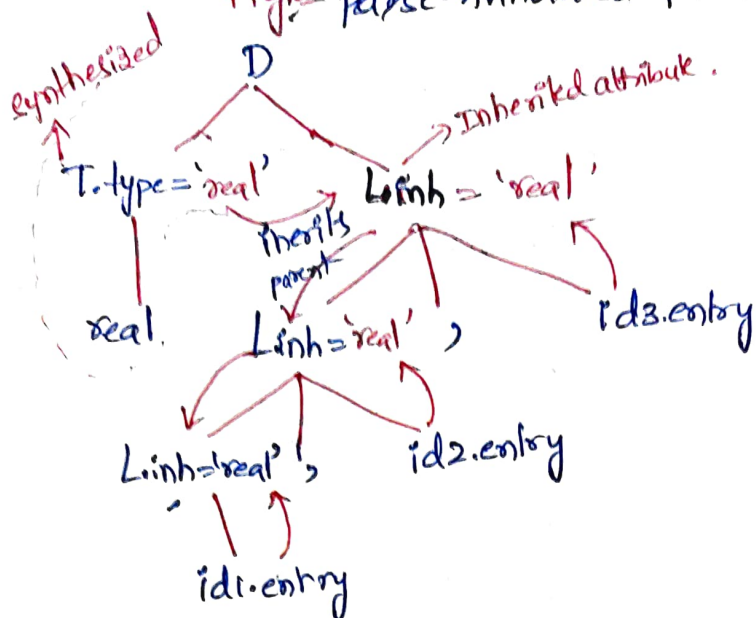 synthesized
D
Inherited attribute.
T.type = 'real'
L.inh = 'real'
inherits
parent
real.
L.inh = 'real' ,
id3.entry
L.inh = 'real' ,
id2.entry
id1.entry